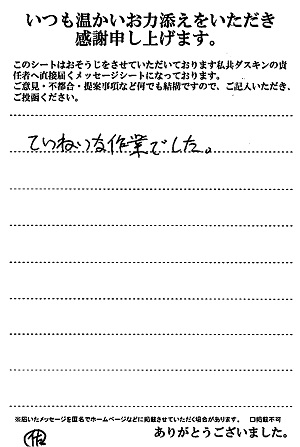 いつも温かいお力添えをいただき
感謝申し上げます。
このシートはおそうじをさせていただいております私共ダスキンの責
任者へ直接届くメッセージシートになっております。
ご意見・不都合・提案事項など何でも結構ですので、ご記入いただき、
ご投函ください。
ていねいな作業でした。
※届いたメッセージを匿名でホームページなどに掲載させていただく場合があります。 □掲載不可
ありがとうございました。